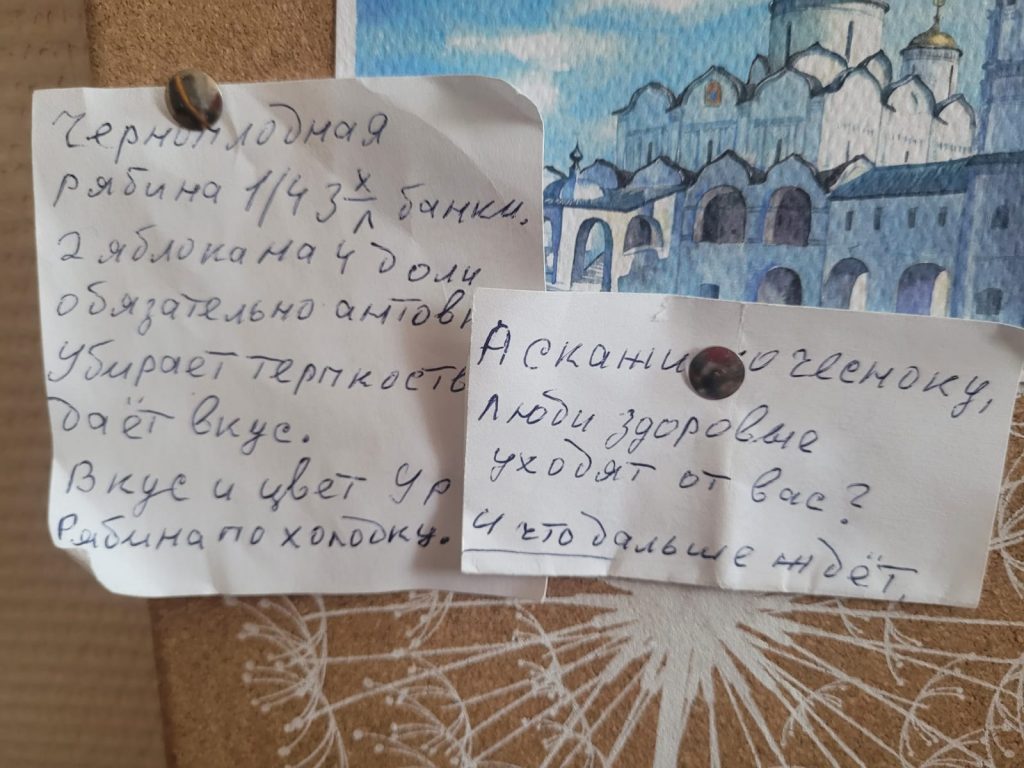 Черноплодная
рябина 1/4 3х/л банки.
2 яблока на 4 доли
обязательно
Убирает терпкость
даёт вкус.
Вкус и цвет Ур
Рябина по холодку.
А скажи
чесноку,
люди здоровые
уходят от вас?
И что дальше ждёт,